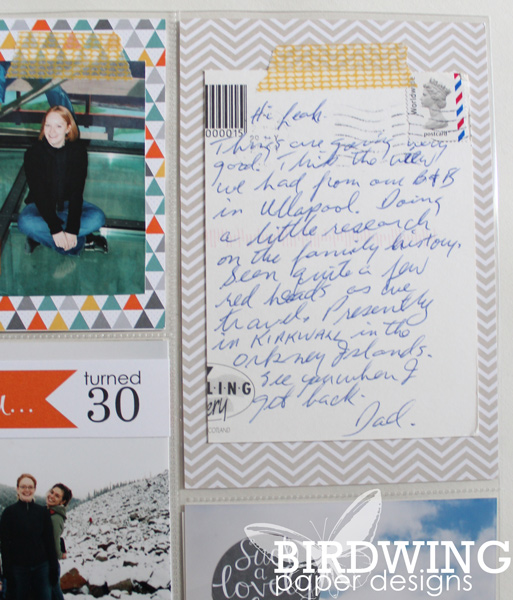 000015
Hi Leah
Worldwide
postcard
Things are going very
good. This the view
we had from our B&B
in Ullapool. Doing
a little research
on the family history.
Seen quite a few
red heads as we
travel. Presently
in KIRKWALL in the
Orkney Islands.
See ya when I
get back.
Dad.
LING
ery
SCOTLAND
turned
30
BIRDWING
paper designs